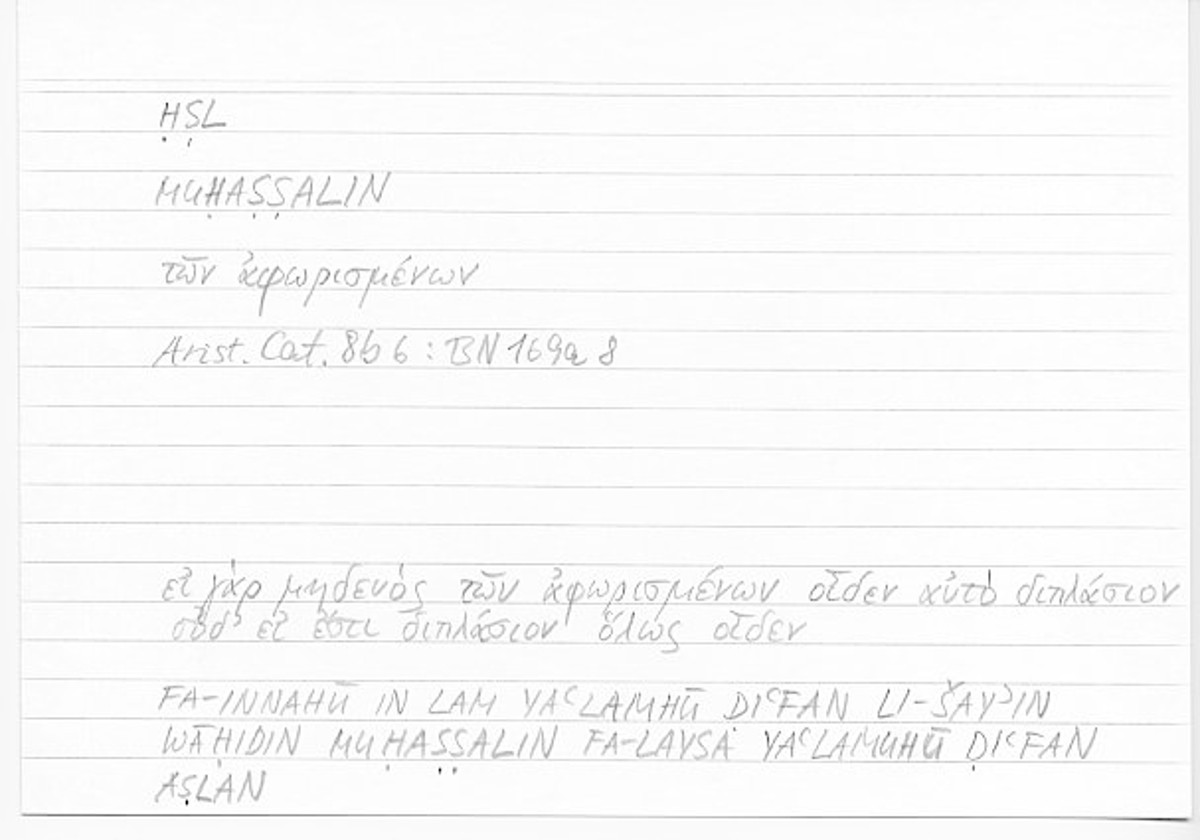 ḤṢL
MUḤAṢṢALIN
τῶν ἀφωρισμένων
Arist. Cat. 8b 6 : BN 169a 8
εἰ γὰρ μηδενὸς τῶν ἀφωρισμένων οἶδεν αὐτὸ διπλάσιον
οὐδ' εἰ ἔστι διπλάσιον ὅλως οἶδεν
FA-INNAHŪ IN LAM YAʿLAMHŪ ḌIʿFAN LI-ŠAYʾIN
WĀḤIDIN MUḤAṢṢALIN FA-LAYSA YAʿLAMUHŪ ḌIʿFAN
AṢLAN